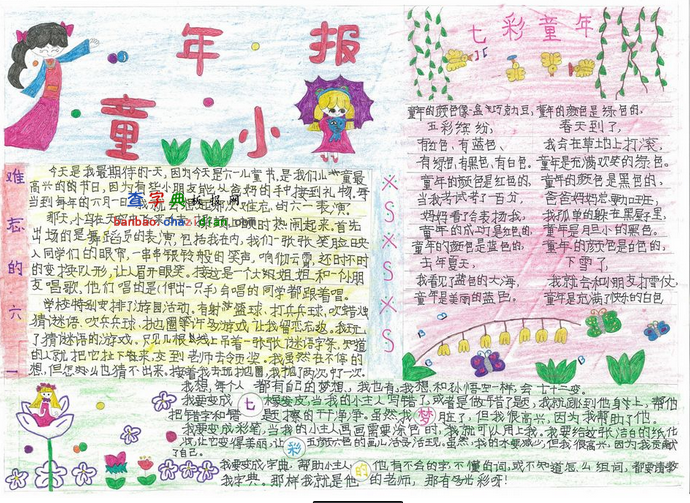 童年小报
难忘的六一
今天是我最期待的一天,因为今天是六一儿童节,是我们儿童最
高兴的的节日,因为有些小朋友能从爸妈的手中接到礼物。每
当到每年的六月一日
查字典板报网
banbao.chazidian.com
出场的是舞蹈
入同学们的眼帘,一串串银铃般的笑声,响彻云霄,还时不时
的变换队形,让人眉开眼笑。接这是一个大姐姐和一个小朋
友唱歌,他们唱的是《伸出一只手》会唱的同学都跟着唱。
学校特别安排了游园活动,有射篮球、打乒乓球、吹蜡烛
猜谜语、吹乒乓球、抛圈等许多游戏,让我留恋忘返。我玩
了猜谜语的游戏,只见几根线上吊着一张张谜语字条,知道
的人就把它扯下来,交到老师去领奖。我虽然在不停的
想,但怎么也猜不出来,接着我去玩抛圈,我抛了两次
※S※S※S
七彩童年
童年的颜色像盒巧克力豆,
五彩缤纷,
有红色,有蓝色、
有绿色有黑色,有白色。
童年的颜色是红色的,
当我考试考了百分
妈妈看了表扬我,
童年的成功是红色的,
童年的颜色是蓝色的,
去年夏天,
我看见了蓝色的大海,
童年是美丽的蓝色。
童年的颜色是绿色的。
春天到了,
我会在草地上打滚,
童年是充满欢笑的绿色。
童年的颜色是黑色的,
爸爸妈妈总喜加旺班,
我孤单的躲在黑屋里,
童年是胆小的黑色。
童年的颜色是白色的,
下雪了,
我就会和朋友打雪仗
童年是充满了快乐的白色
我想,每个人都有自己的梦想,我也有,我想和孙悟空一样,会七十二变。
我要变成 七 橡皮,当我的小主人写错了,或者是他干错了题,我就跳到他身上,帮他
把错字和错题擦的干干净净。虽然我 梦 脏了,但我很高兴,因为我帮助了他。
我要变成彩笔,当我的小主人画画需要涂色时,我就可以用上我。我要给这张洁白的纸化
妆,让它变得美丽,让 彩 五颜六色的画儿活灵活现。虽然,我的水要减少,但我很高兴,因为我贡献
了自己。
我要变成字典,帮助小主人 的 他有不会的字,不懂的词,或不知道怎么组词,都要请教
我字典。那样我就是他的老师,那有多光彩呀!